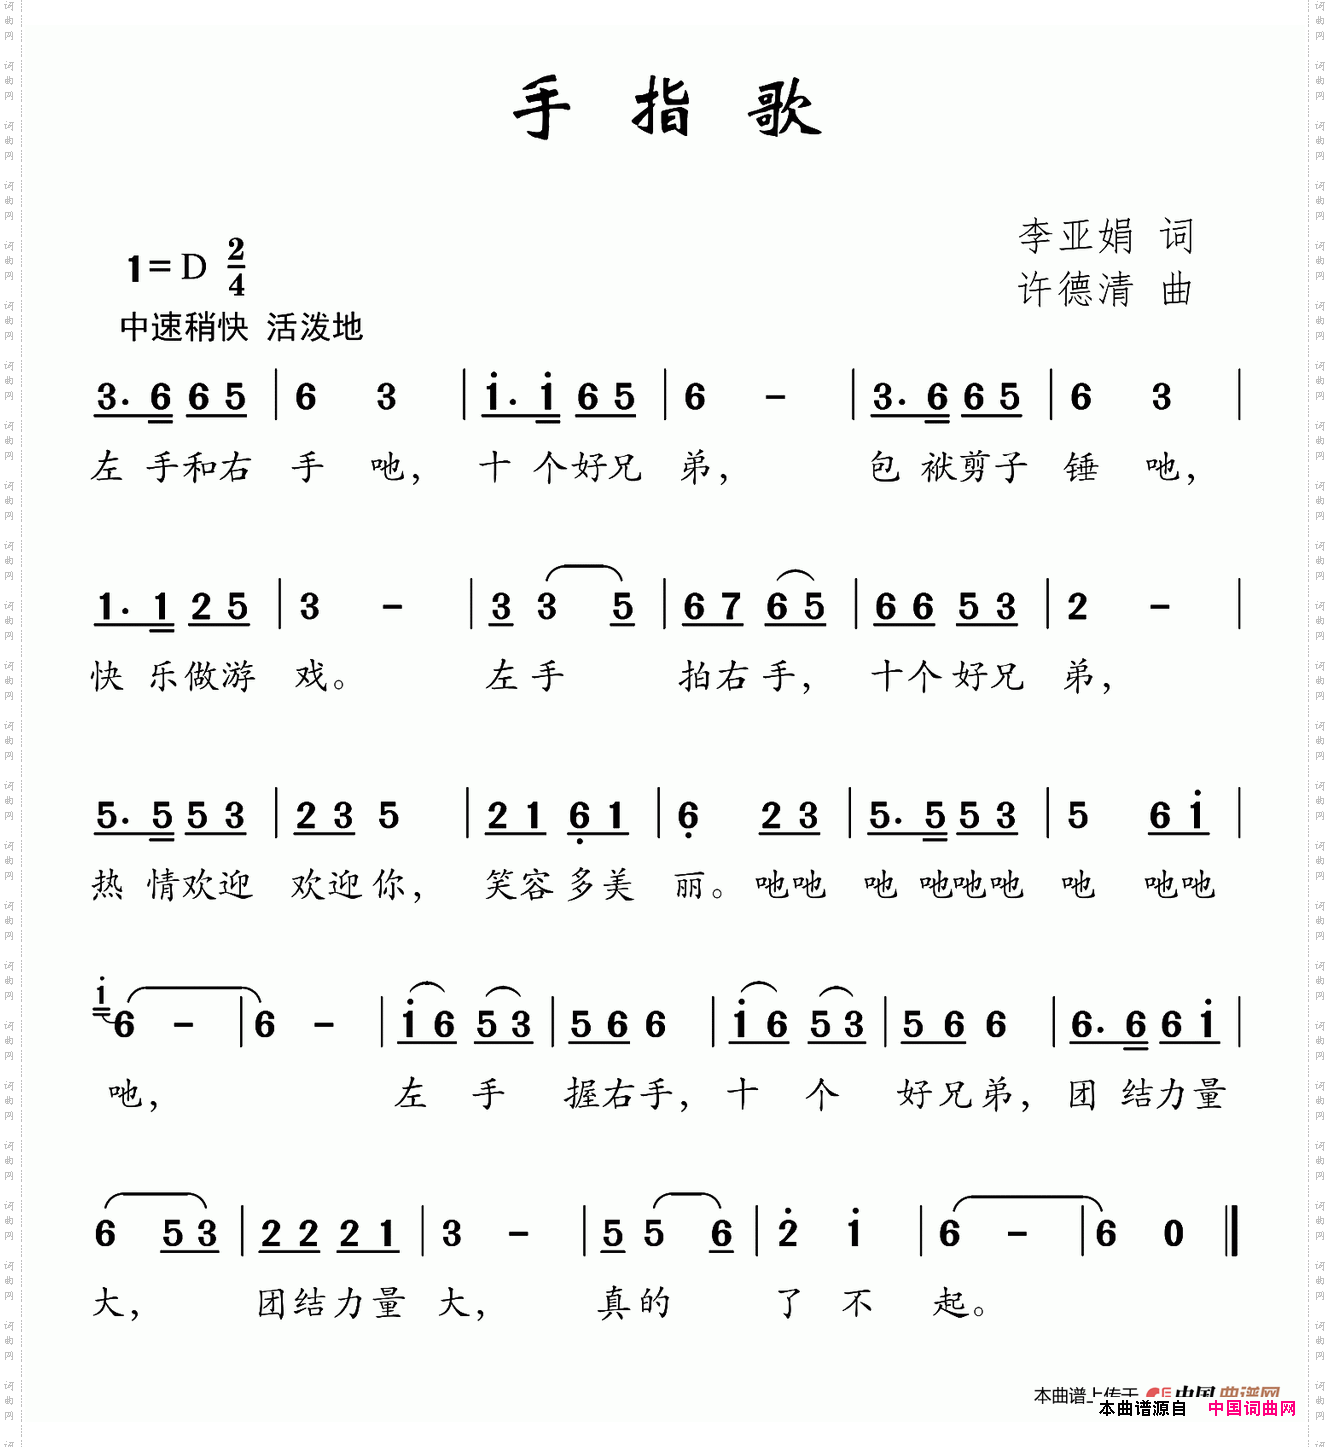 手 指 歌
李亚娟 词
1=D 2/4
许德清 曲
中速稍快 活泼地
3. 6 6 5 | 6 3 | i. i 6 5 | 6 - | 3. 6 6 5 | 6 3 |
左 手和右 手 吔， 十 个好兄 弟， 包 袱剪子 锤 吔，
1. 1 2 5 | 3 - | 3 3 5 | 6 7 6 5 | 6 6 5 3 | 2 - |
快 乐做游 戏。 左手 拍右手， 十个好兄 弟，
5. 5 5 3 | 2 3 5 | 2 1 6̣ 1 | 6̣ 2 3 | 5. 5 5 3 | 5 6 i |
热 情欢迎 欢迎你， 笑容多美 丽。 吔吔 吔 吔吔吔 吔 吔吔
i 6 - | 6 - | i 6 5 3 | 5 6 6 | i 6 5 3 | 5 6 6 | 6. 6 6 i |
吔， 左 手 握右手， 十 个 好兄弟， 团 结力量
6 5 3 | 2 2 2 1 | 3 - | 5 5 6 | 2̇ i | 6 - | 6 0 ‖
大， 团结力量 大， 真的 了 不 起。
本曲谱上传于 中国曲谱网
本曲谱源自 中国词曲网
词曲网